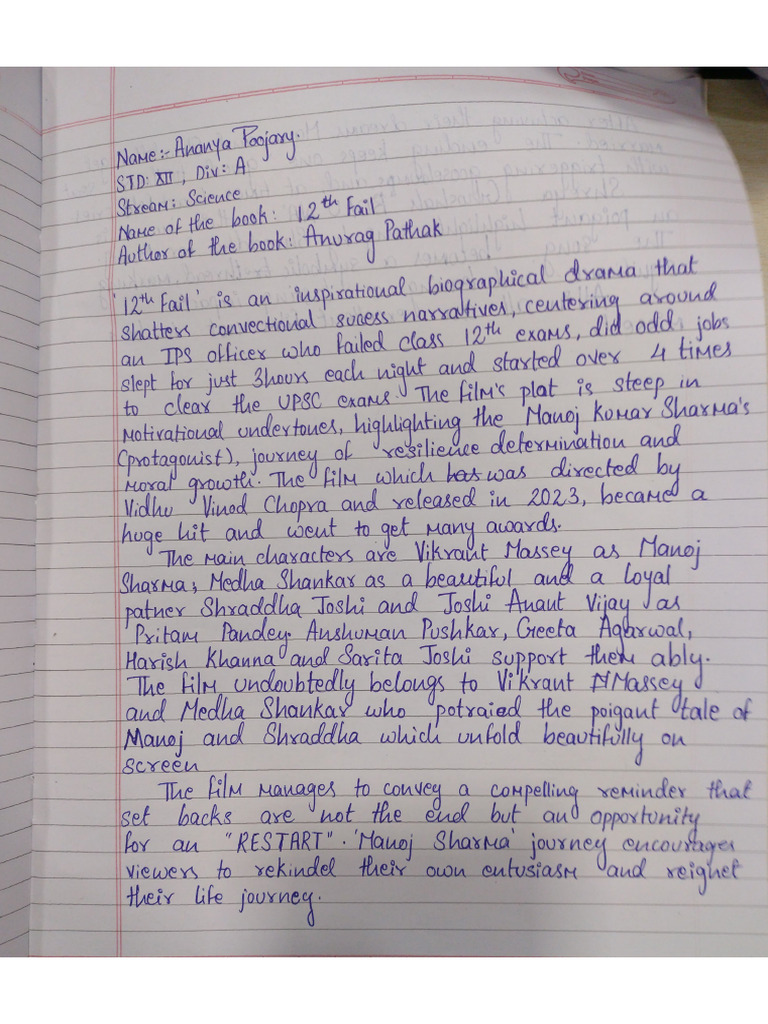 Name:- Ananya Poojary.
STD: XII ; Div: A
Stream: Science
Name of the book: 12th Fail
Author of the book: Anurag Pathak
'12th Fail' is an inspirational biographical drama that
shatters convectional sucess narratives, centering around
an IPS officer who failed class 12th exams, did odd jobs
slept for just 3hours each night and started over 4 times
to clear the UPSC exams. The film's plat is steep in
motivational undertones, highlighting the Manoj Kumar Sharma's
(protagonist), journey of resilience determination and
moral growth. The film which has was directed by
Vidhu Vinod Chopra and released in 2023, became a
huge hit and went to get many awards.
The main characters are Vikrant Massey as Manoj
Sharma, Medha Shankar as a beautiful and a loyal
patner Shraddha Joshi and Joshi Anant Vijay as
Pritam Pandey. Anshuman Pushkar, Geeta Agarwal,
Harish Khanna and Sarita Joshi support them ably.
The film undoubtedly belongs to Vikrant Massey
and Medha Shankar who potraied the poigant tale of
Manoj and Shraddha which unfold beautifully on
screen
The film manages to convey a compelling reminder that
set backs are not the end but an opportunity
for an "RESTART". 'Manoj Sharma' journey encourages
viewers to rekindel their own entusiasm and reighet
their life journey.